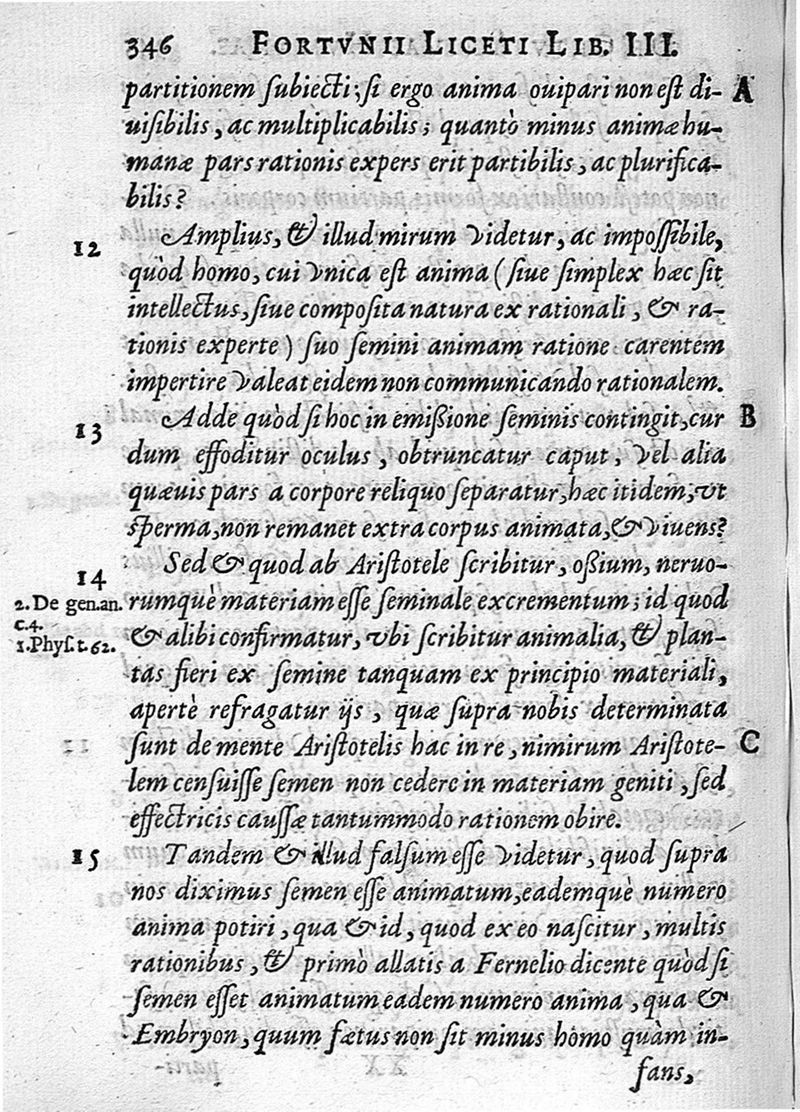 346 FORTVNII LICETI LIB. III.
partitionem ſubiecti; ſi ergo anima ouipari non eſt di- A
uiſibilis, ac multiplicabilis; quantò minus animæ hu-
manæ pars rationis expers erit partibilis, ac plurifica-
bilis?
12 Amplius, & illud mirum videtur, ac impoſſibile,
quòd homo, cui vnica eſt anima (ſiue ſimplex hæc ſit
intellectus, ſiue compoſita natura ex rationali, & ra-
tionis experte) ſuo ſemini animam ratione carentem
impertire valeat eidem non communicando rationalem.
13 Adde quòd ſi hoc in emißione ſeminis contingit, cur B
dum effoditur oculus, obtruncatur caput, vel alia
quæuis pars a corpore reliquo ſeparatur, hæc itidem, vt
ſperma, non remanet extra corpus animata, & viuens?
14 Sed & quod ab Ariſtotele ſcribitur, oßium, neruo-
2. De gen. an. rumquè materiam eſſe ſeminale excrementum; id quod
c.4.
1. Phyſ. t. 62. & alibi confirmatur, vbi ſcribitur animalia, & plan-
tas fieri ex ſemine tanquam ex principio materiali,
apertè refragatur ijs, quæ ſupra nobis determinata
ſunt de mente Ariſtotelis hac in re, nimirum Ariſtote- C
lem cenſuiſſe ſemen non cedere in materiam geniti, ſed
effectricis cauſſæ tantummodo rationem obire.
15 Tandem & illud falſum eſſe videtur, quod ſupra
nos diximus ſemen eſſe animatum, eademquè numero
anima potiri, qua & id, quod ex eo naſcitur, multis
rationibus, & primò allatis a Fernelio dicente quòd ſi
ſemen eſſet animatum eadem numero anima, qua &
Embryon, quum fætus non ſit minus homo quàm in-
fans,